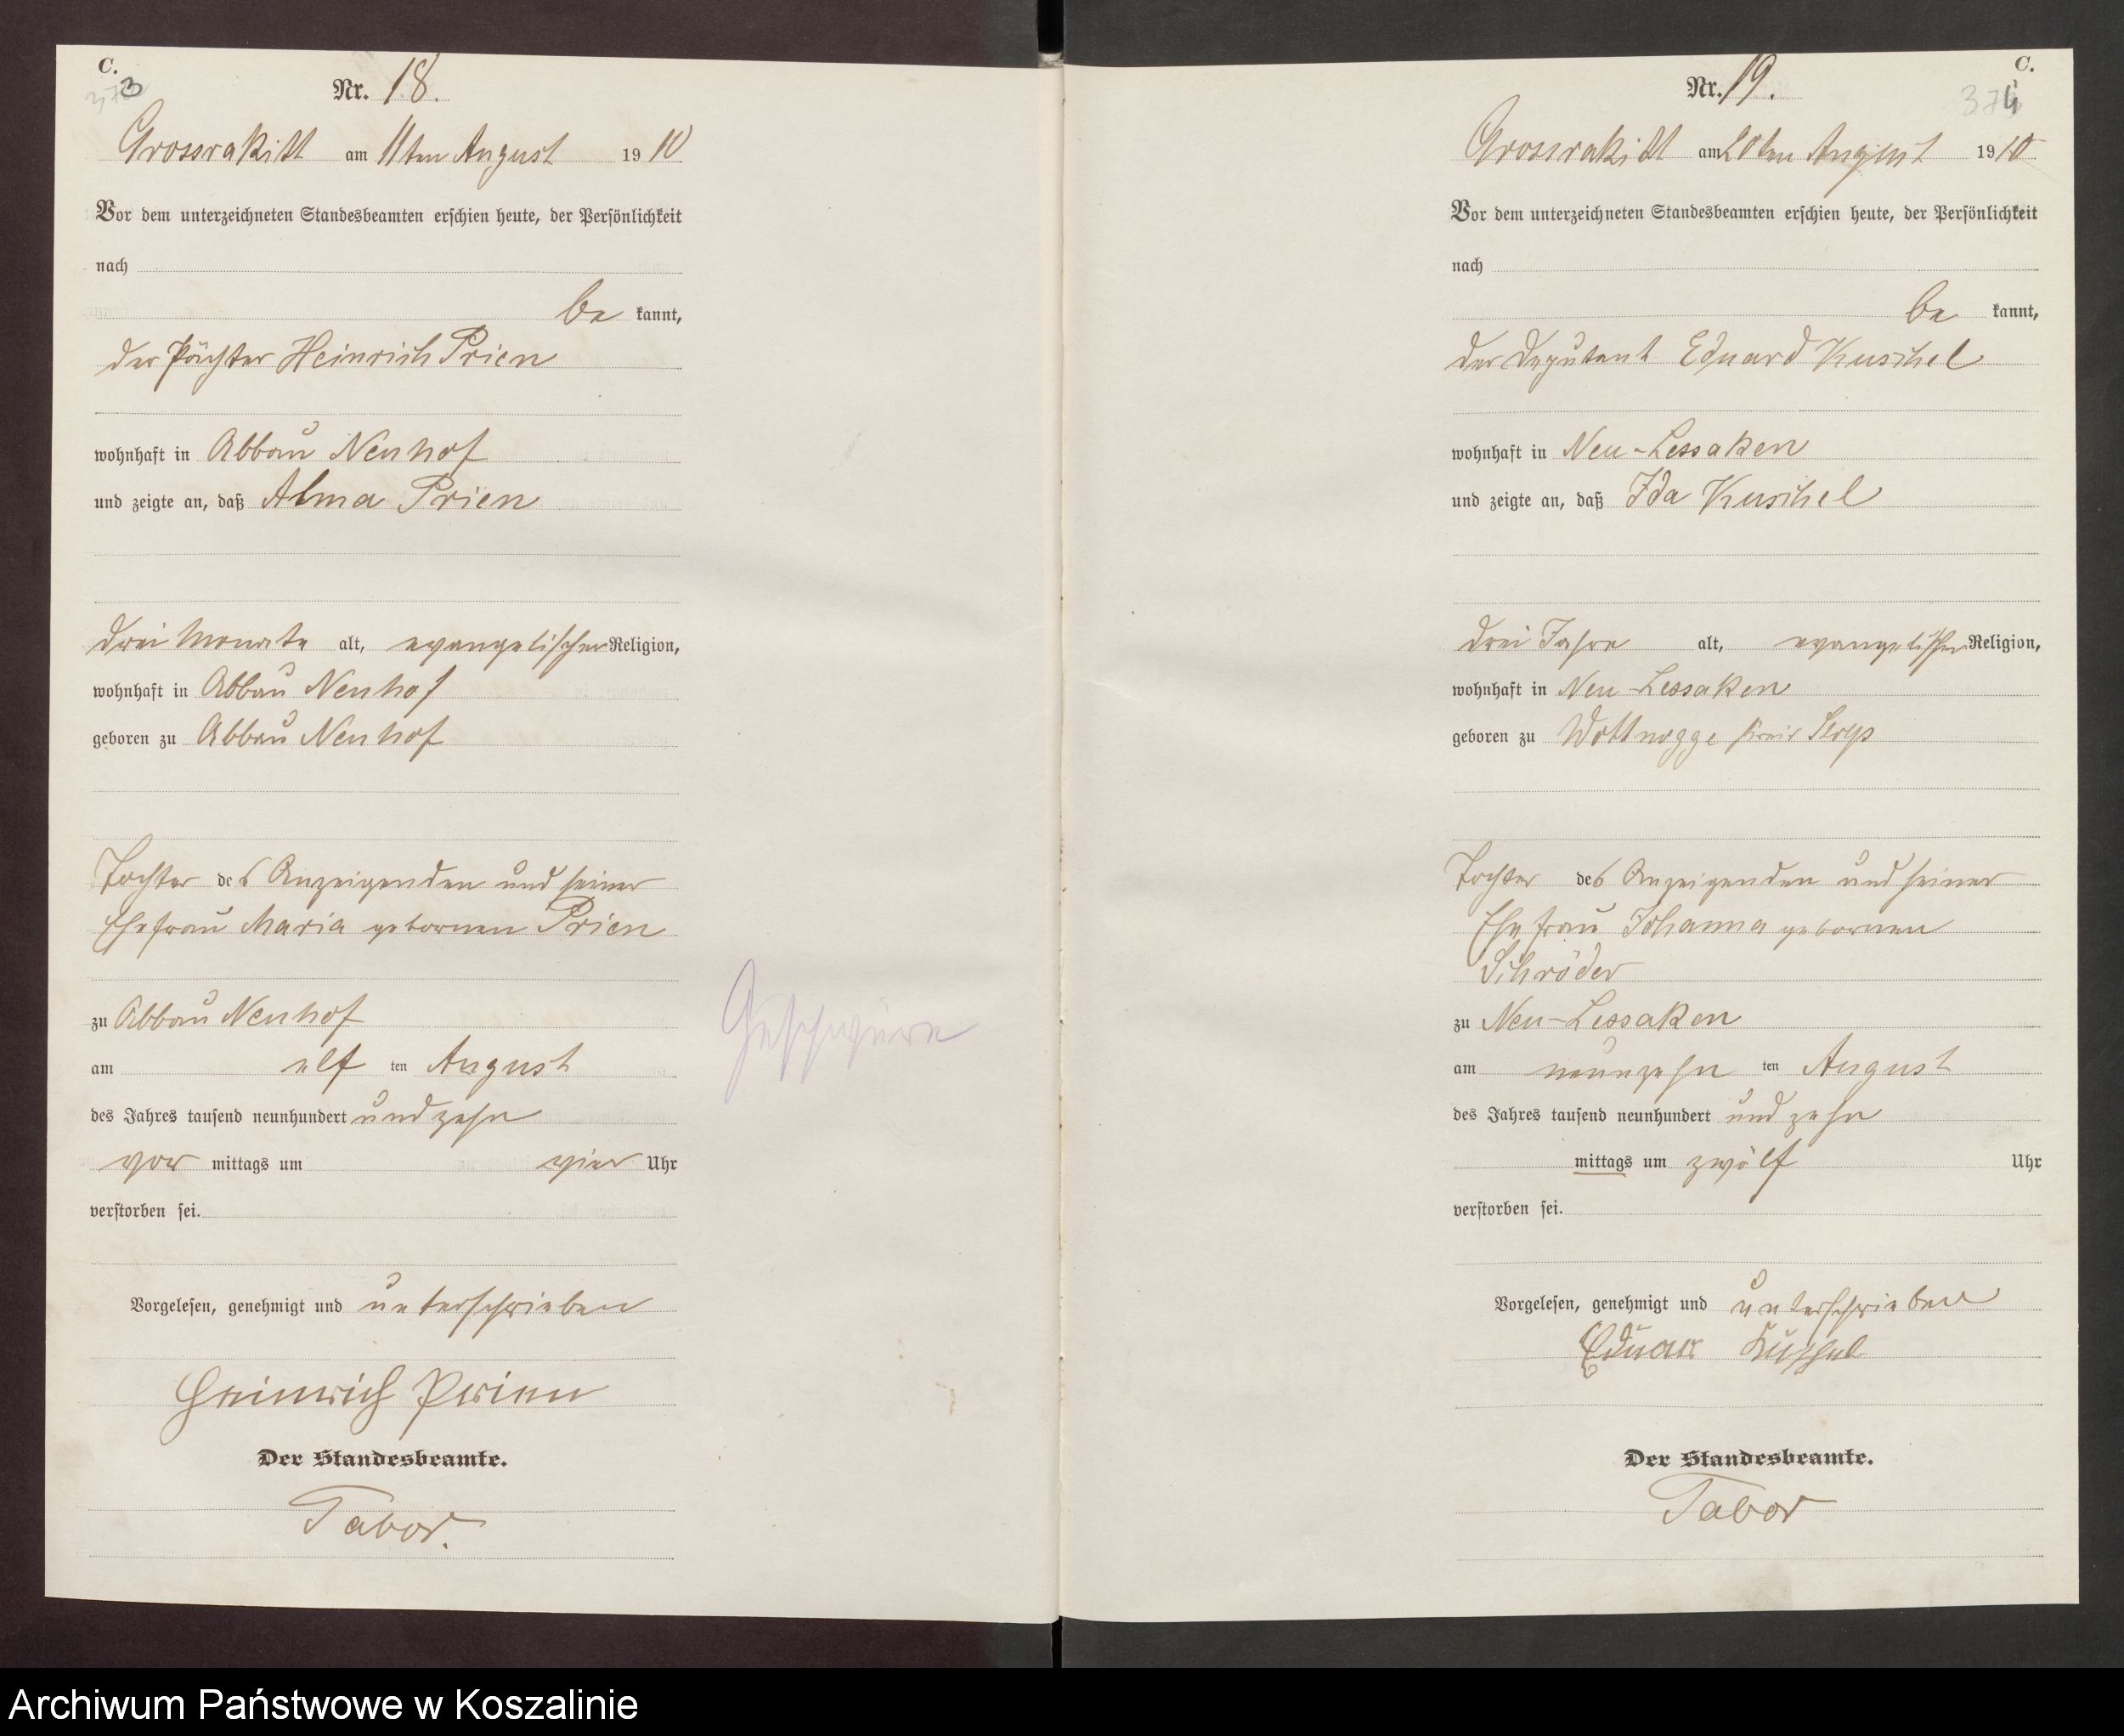 C.
373
Nr. 18.
Grossrakitt am 11ten August 1910
Vor dem unterzeichneten Standesbeamten erschien heute, der Persönlichkeit
nach
be kannt,
der Pächter Heinrich Prien
wohnhaft in Abbau Neuhof
und zeigte an, daß Alma Prien
drei Monate alt, evangelischer Religion,
wohnhaft in Abbau Neuhof
geboren zu Abbau Neuhof
Tochter des Anzeigenden und seiner
Ehefrau Maria gebornen Prien
zu Abbau Neuhof
am elf ten August
des Jahres tausend neunhundert und zehn
vor mittags um vier Uhr
verstorben sei.
Vorgelesen, genehmigt und unterschrieben
Heinrich Prien
Der Standesbeamte.
Tabor.
Geschwüre
C.
374
Nr. 19.
Grossrakitt am 20ten August 1910
Vor dem unterzeichneten Standesbeamten erschien heute, der Persönlichkeit
nach
be kannt,
der Deputant Eduard Kuschel
wohnhaft in Neu-Lessaken
und zeigte an, daß Ida Kuschel
drei Jahre alt, evangelischer Religion,
wohnhaft in Neu-Lessaken
geboren zu Wottnogge Kreis Stolp
Tochter des Anzeigenden und seiner
Ehefrau Johanna gebornen
Schröder
zu Neu-Lessaken
am neunzehn ten August
des Jahres tausend neunhundert und zehn
mittags um zwölf Uhr
verstorben sei.
Vorgelesen, genehmigt und unterschrieben
Eduard Kuschel
Der Standesbeamte.
Tabor
Archiwum Państwowe w Koszalinie